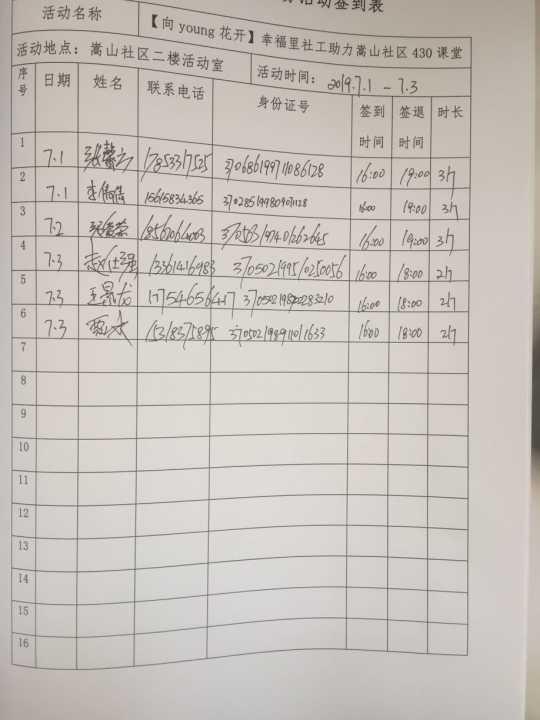 活动签到表
活动名称 【向 young 花开】幸福里社工助力嵩山社区 430 课堂
活动地点：嵩山社区二楼活动室 活动时间：2019.7.1 - 7.3
序号 日期 姓名 联系电话 身份证号 签到时间 签退时间 时长
1 7.1 17853317525 370686199711086128 16:00 19:00 3h
2 7.1 15615834365 16:00 19:00 3h
3 7.2 370503197401262645 16:00 19:00 3h
4 7.3 赵仕强 13361416983 370502199510250056 16:00 18:00 2h
5 7.3 王景龙 16:00 18:00 2h
6 7.3 15318375895 370502198911011633 16:00 18:00 2h
7
8
9
10
11
12
13
14
15
16